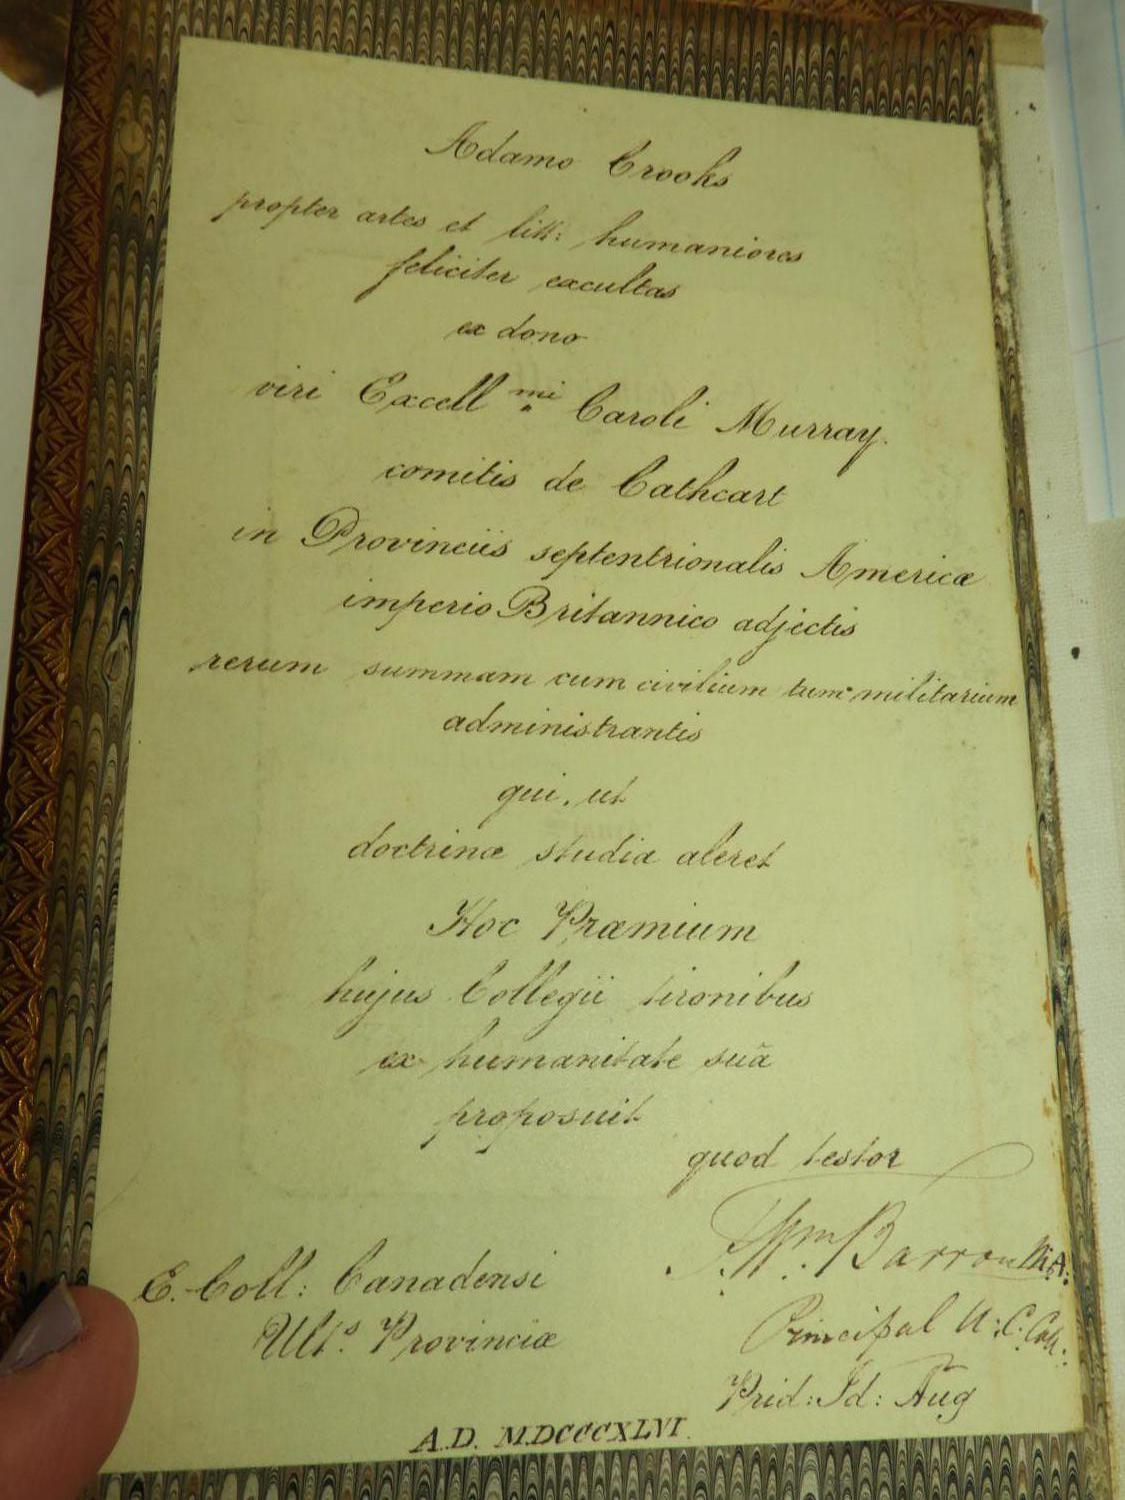 Adamo Crooks
propter artes et litt: humaniores
feliciter excultas
ex dono
viri Excell.mi Caroli Murray.
comitis de Cathcart
in Provinciis septentrionalis Americæ
imperio Britannico adjectis
rerum summam cum civilium tum militarium
administrantis
qui, ut
doctrinæ studia aleret
Hoc Præmium
hujus Collegii tironibus
ex humanitate suâ
proposuit
quod testor
Barron M.A.
E. Coll: Canadensi
Principal U: C. Coll:
Ult.s Provinciæ
Prid: Id: Aug
A.D. MDCCCXLVI.